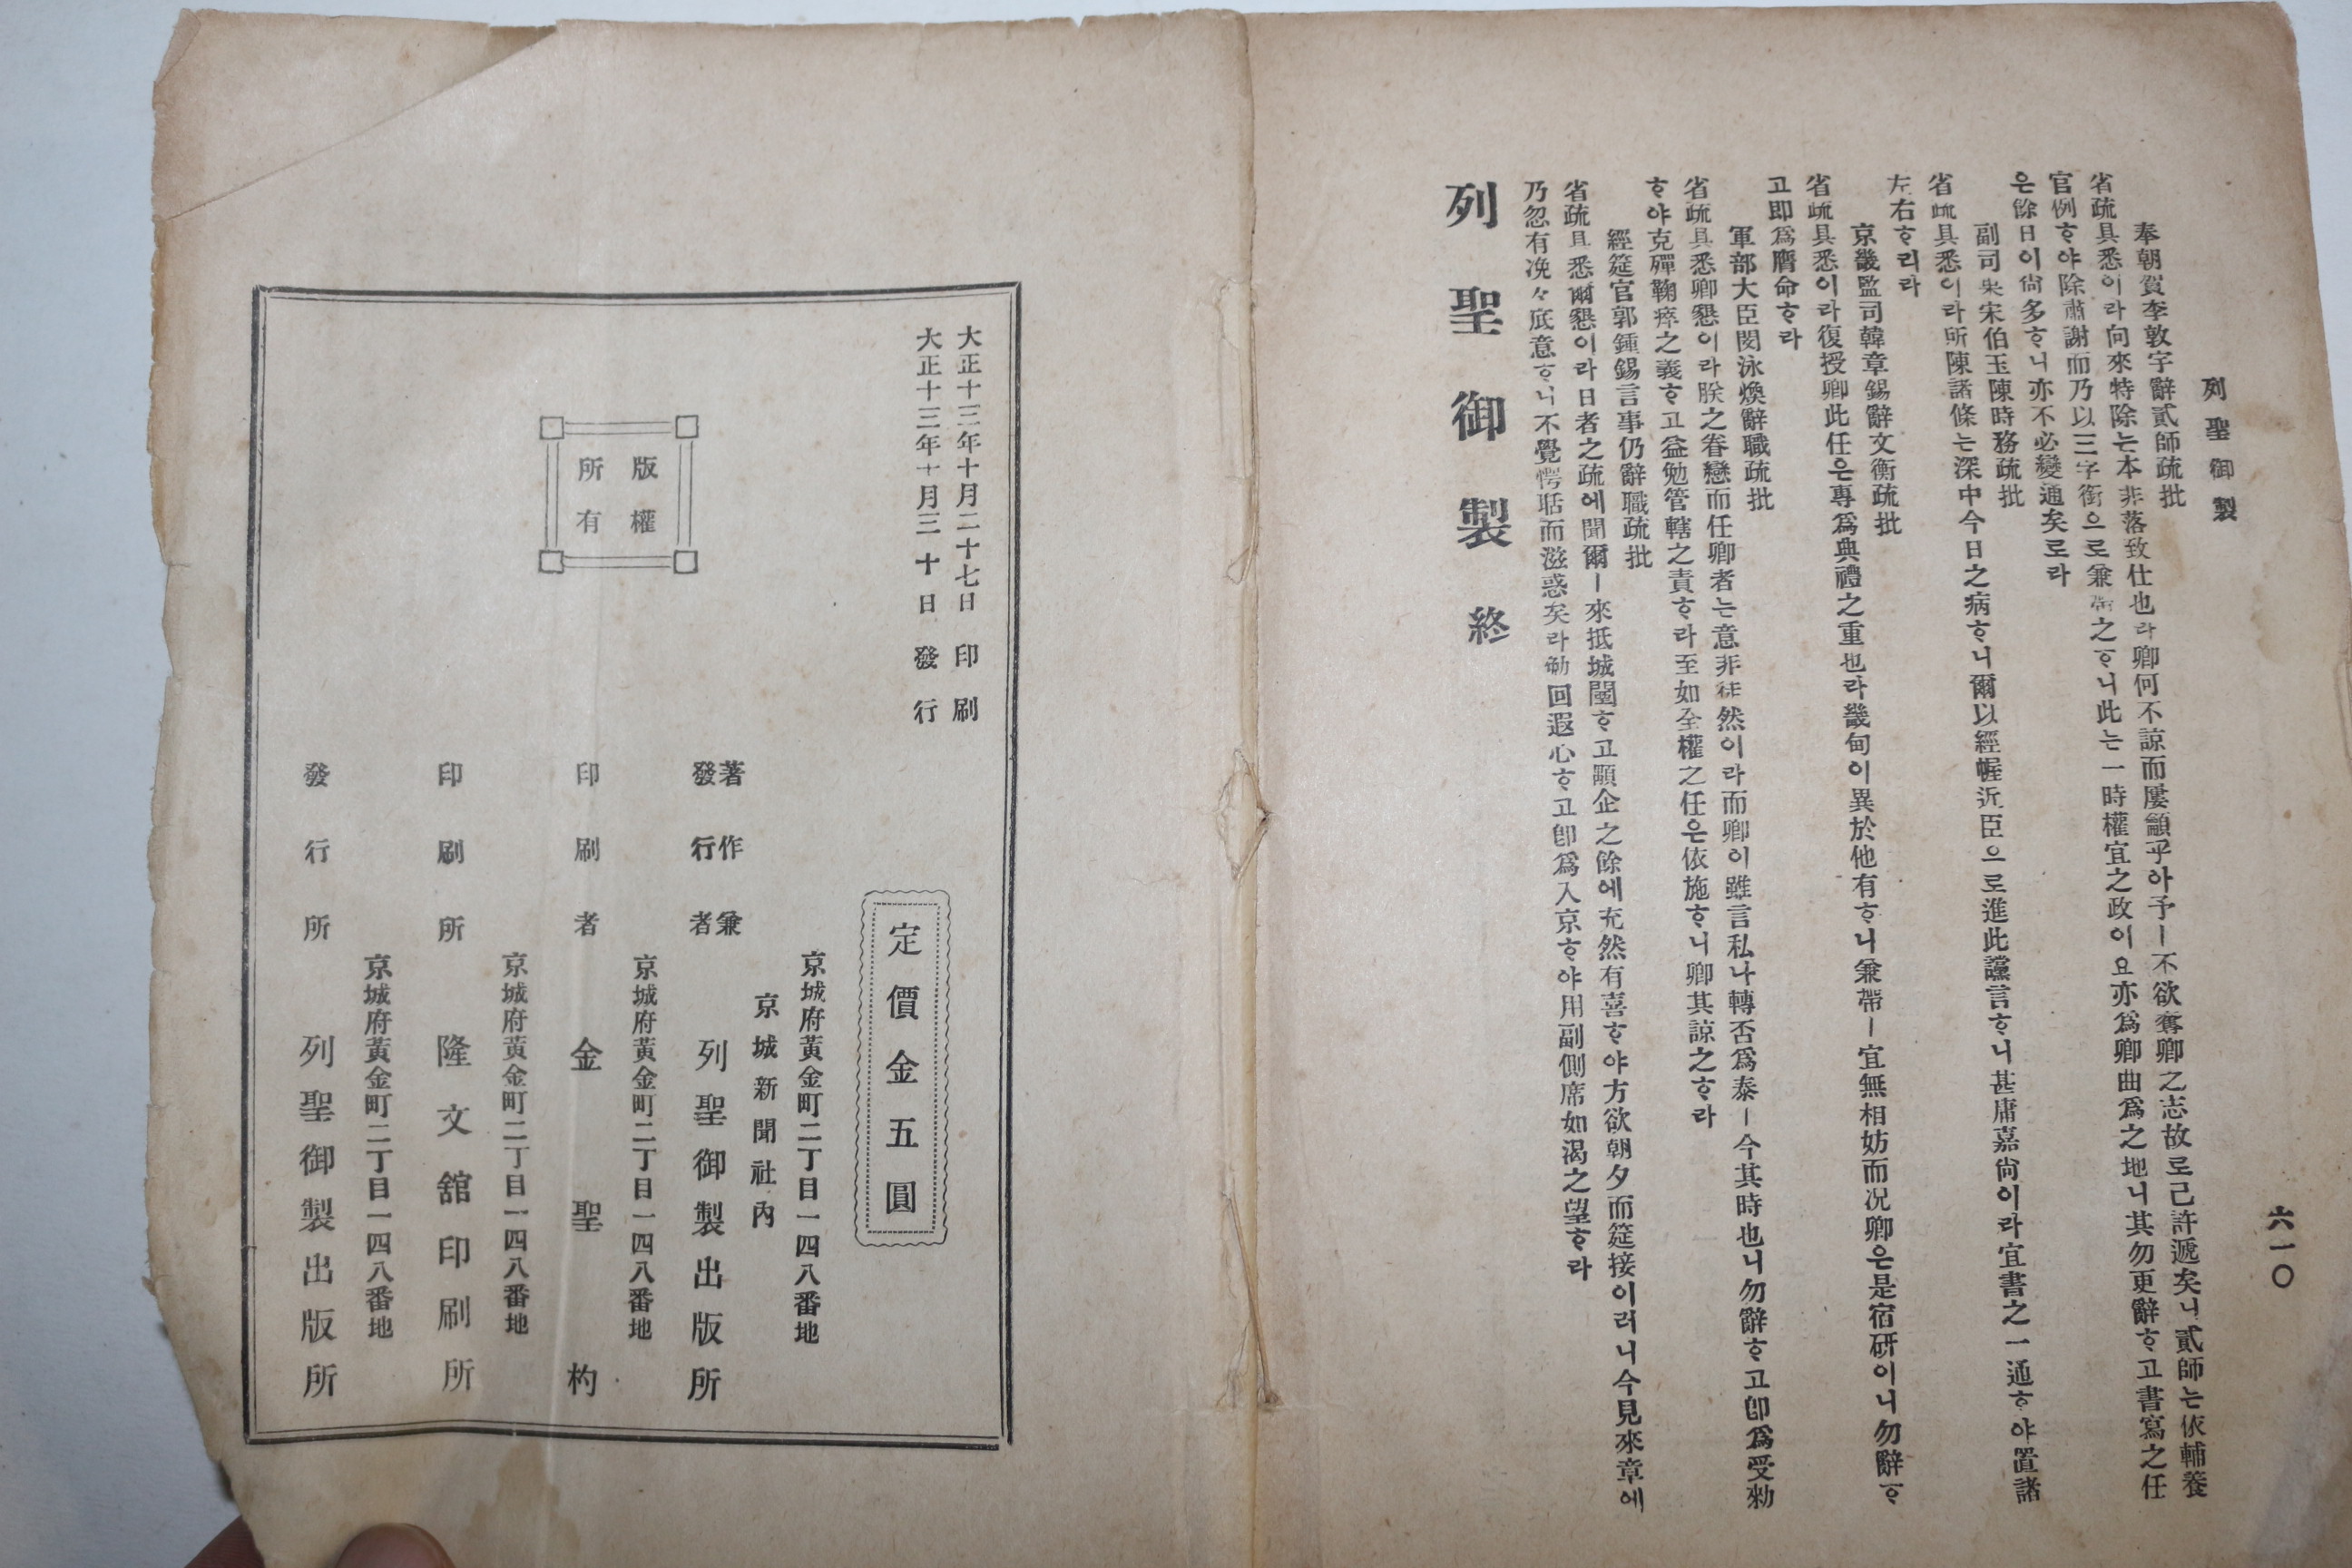 列聖御製
六一〇
奉朝賀李敦宇辭貳師疏批
省疏具悉이라向來特除는本非落致仕也라卿何不諒而屢籲乎아予ㅣ不欲奪卿之志故로已許遞矣니貳師는依輔養
官例ᄒᆞ야除肅謝而乃以三字銜으로兼帶之ᄒᆞ니此는一時權宜之政이요亦爲卿曲爲之地니其勿更辭ᄒᆞ고書寫之任
은餘日이尙多ᄒᆞ니亦不必變通矣로라
副司果宋伯玉陳時務疏批
省疏具悉이라所陳諸條는深中今日之病ᄒᆞ니爾以經幄近臣으로進此讜言ᄒᆞ니甚庸嘉尙이라宜書之一通ᄒᆞ야置諸
左右ᄒᆞ리라
京畿監司韓章錫辭文衡疏批
省疏具悉이라復授卿此任은專爲典禮之重也라畿甸이異於他有ᄒᆞ니兼帶ㅣ宜無相妨而况卿은是宿硏이니勿辭ᄒᆞ
고即爲膺命ᄒᆞ라
軍部大臣閔泳煥辭職疏批
省疏具悉卿懇이라朕之眷戀而任卿者는意非徒然이라而卿이雖言私나轉否爲泰ㅣ今其時也니勿辭ᄒᆞ고卽爲受勅
ᄒᆞ야克殫鞠瘁之義ᄒᆞ고益勉管轄之責ᄒᆞ라至如全權之任은依施ᄒᆞ니卿其諒之ᄒᆞ라
經筵官郭鍾錫言事仍辭職疏批
省疏具悉爾懇이라日者之疏에聞爾ㅣ來抵城闉ᄒᆞ고顒企之餘에充然有喜ᄒᆞ야方欲朝夕而筵接이러니今見來章에
乃忽有浼々底意ᄒᆞ니不覺愕聒而滋惑矣라勉回遐心ᄒᆞ고卽爲入京ᄒᆞ야用副側席如渴之望ᄒᆞ라
列聖御製 終
大正十三年十月二十七日 印刷
大正十三年十月三十日 發行
版權
所有
定價金五圓
京城府黃金町二丁目一四八番地
京城新聞社內
著作兼
發行者 列聖御製出版所
京城府黃金町二丁目一四八番地
印刷者 金聖杓
京城府黃金町二丁目一四八番地
印刷所 隆文舘印刷所
京城府黃金町二丁目一四八番地
發行所 列聖御製出版所